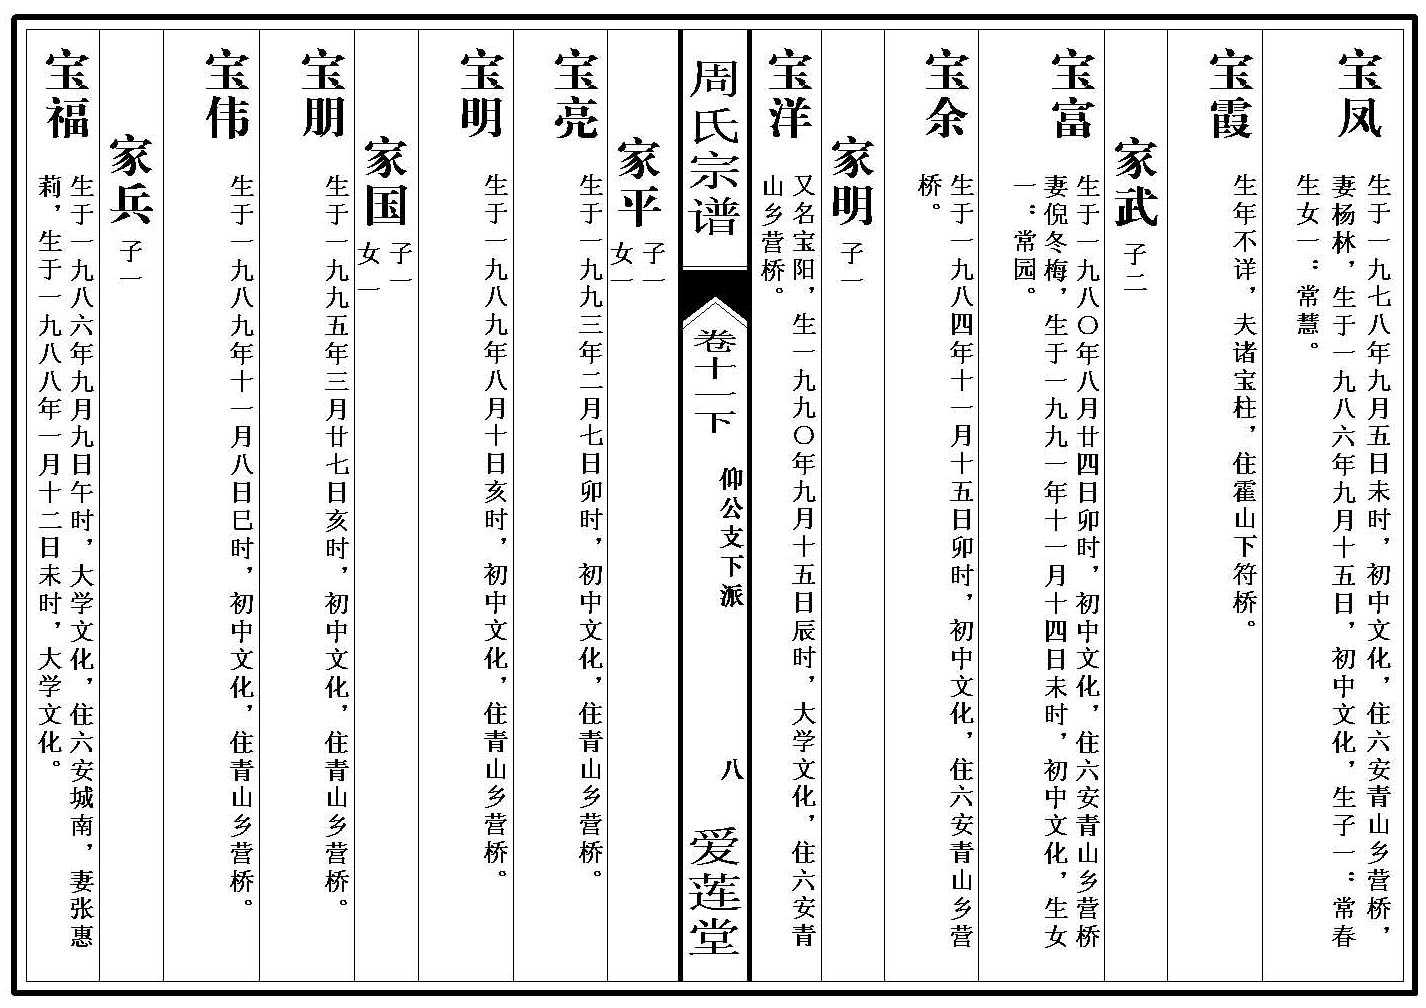 宝凤
生于一九七八年九月五日未时，初中文化，住六安青山乡营桥，
妻杨林，生于一九八六年九月十五日，初中文化，生子一：常春
生女一：常慧。
宝霞
生年不详，夫诸宝柱，住霍山下符桥。
家武
子二
宝富
生于一九八〇年八月廿四日卯时，初中文化，住六安青山乡营桥
妻倪冬梅，生于一九九一年十一月十四日未时，初中文化，生女
一：常园。
宝余
生于一九八四年十一月十五日卯时，初中文化，住六安青山乡营
桥。
家明
子一
宝洋
又名宝阳，生一九九〇年九月十五日辰时，大学文化，住六安青
山乡营桥。
周氏宗谱
卷十一下
仰公支下派
八
爱莲堂
家平
子一
女一
宝亮
生于一九九三年二月七日卯时，初中文化，住青山乡营桥。
宝明
生于一九八九年八月十日亥时，初中文化，住青山乡营桥。
家国
子一
女一
宝朋
生于一九九五年三月廿七日亥时，初中文化，住青山乡营桥。
宝伟
生于一九八九年十一月八日巳时，初中文化，住青山乡营桥。
家兵
子一
宝福
生于一九八六年九月九日午时，大学文化，住六安城南，妻张惠
莉，生于一九八八年一月十二日未时，大学文化。